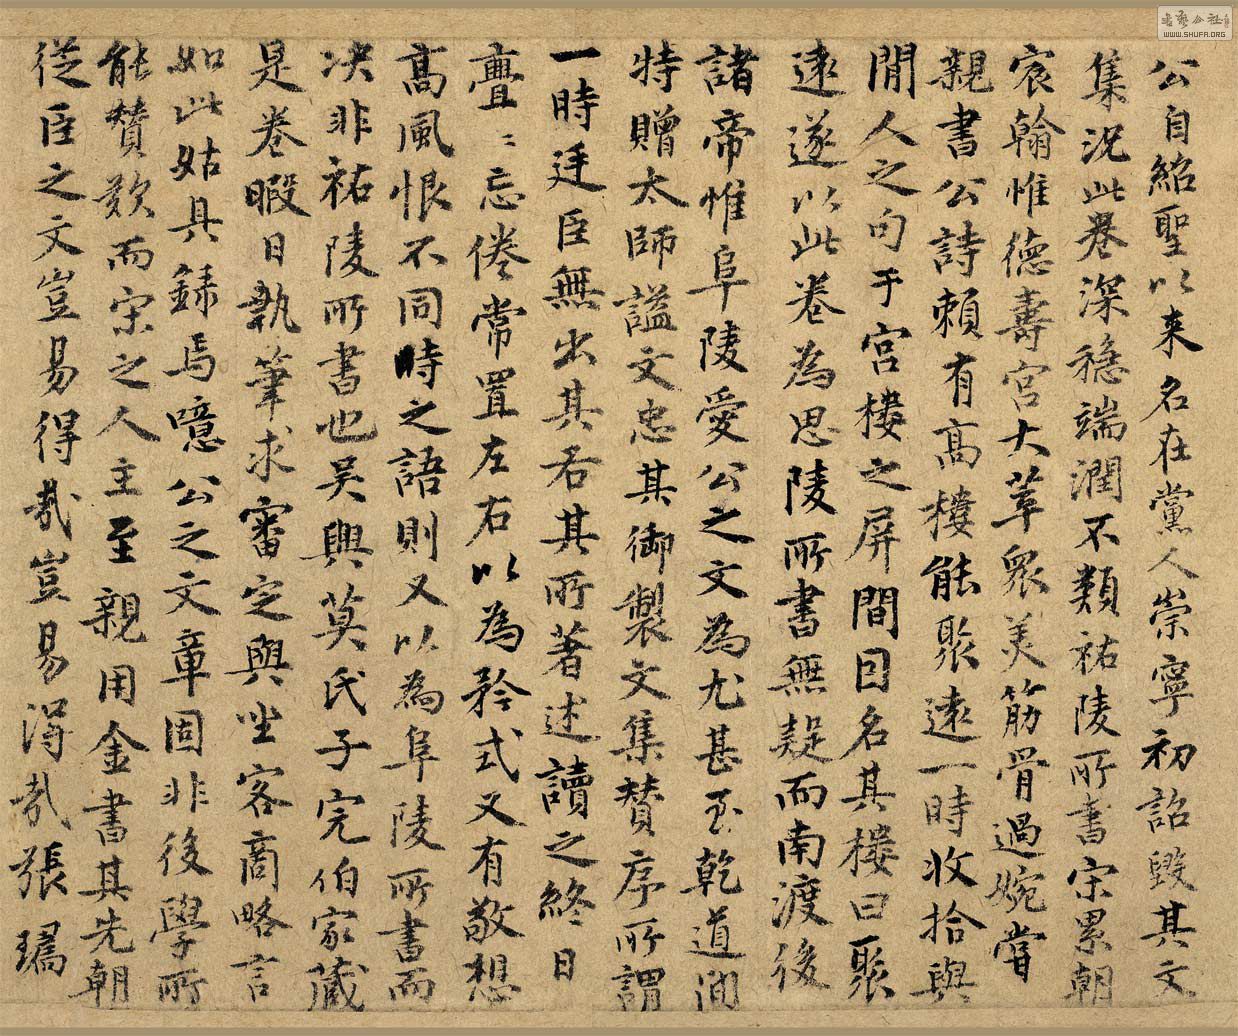 公自紹聖以来名在黨人崇寧初詔毀其文
集況此卷深穩端潤不類祐陵所書宋累朝
宸翰惟德壽宮大萃眾美筋骨過婉嘗
親書公詩賴有高樓能聚遠一時收拾與
閒人之句于宮樓之屏間因名其樓曰聚
遠遂以此卷為思陵所書無疑而南渡後
諸帝惟阜陵愛公之文為尤甚至乾道間
特贈太師謚文忠其御製文集贊序所謂
一時廷臣無出其右其所著述讀之終日
亹〻忘倦常置左右以為矜式又有敬想
高風恨不同時之語則又以為阜陵所書而
决非祐陵所書也吴興莫氏子完伯家藏
是卷暇日執筆求審定與坐客商略言
如此姑具錄焉噫公之文章固非後學所
能贊歎而宋之人主至親用金書其先朝
從臣之文豈易得哉豈易得哉張瑞
书艺公社
WWW.SHUFA.ORG